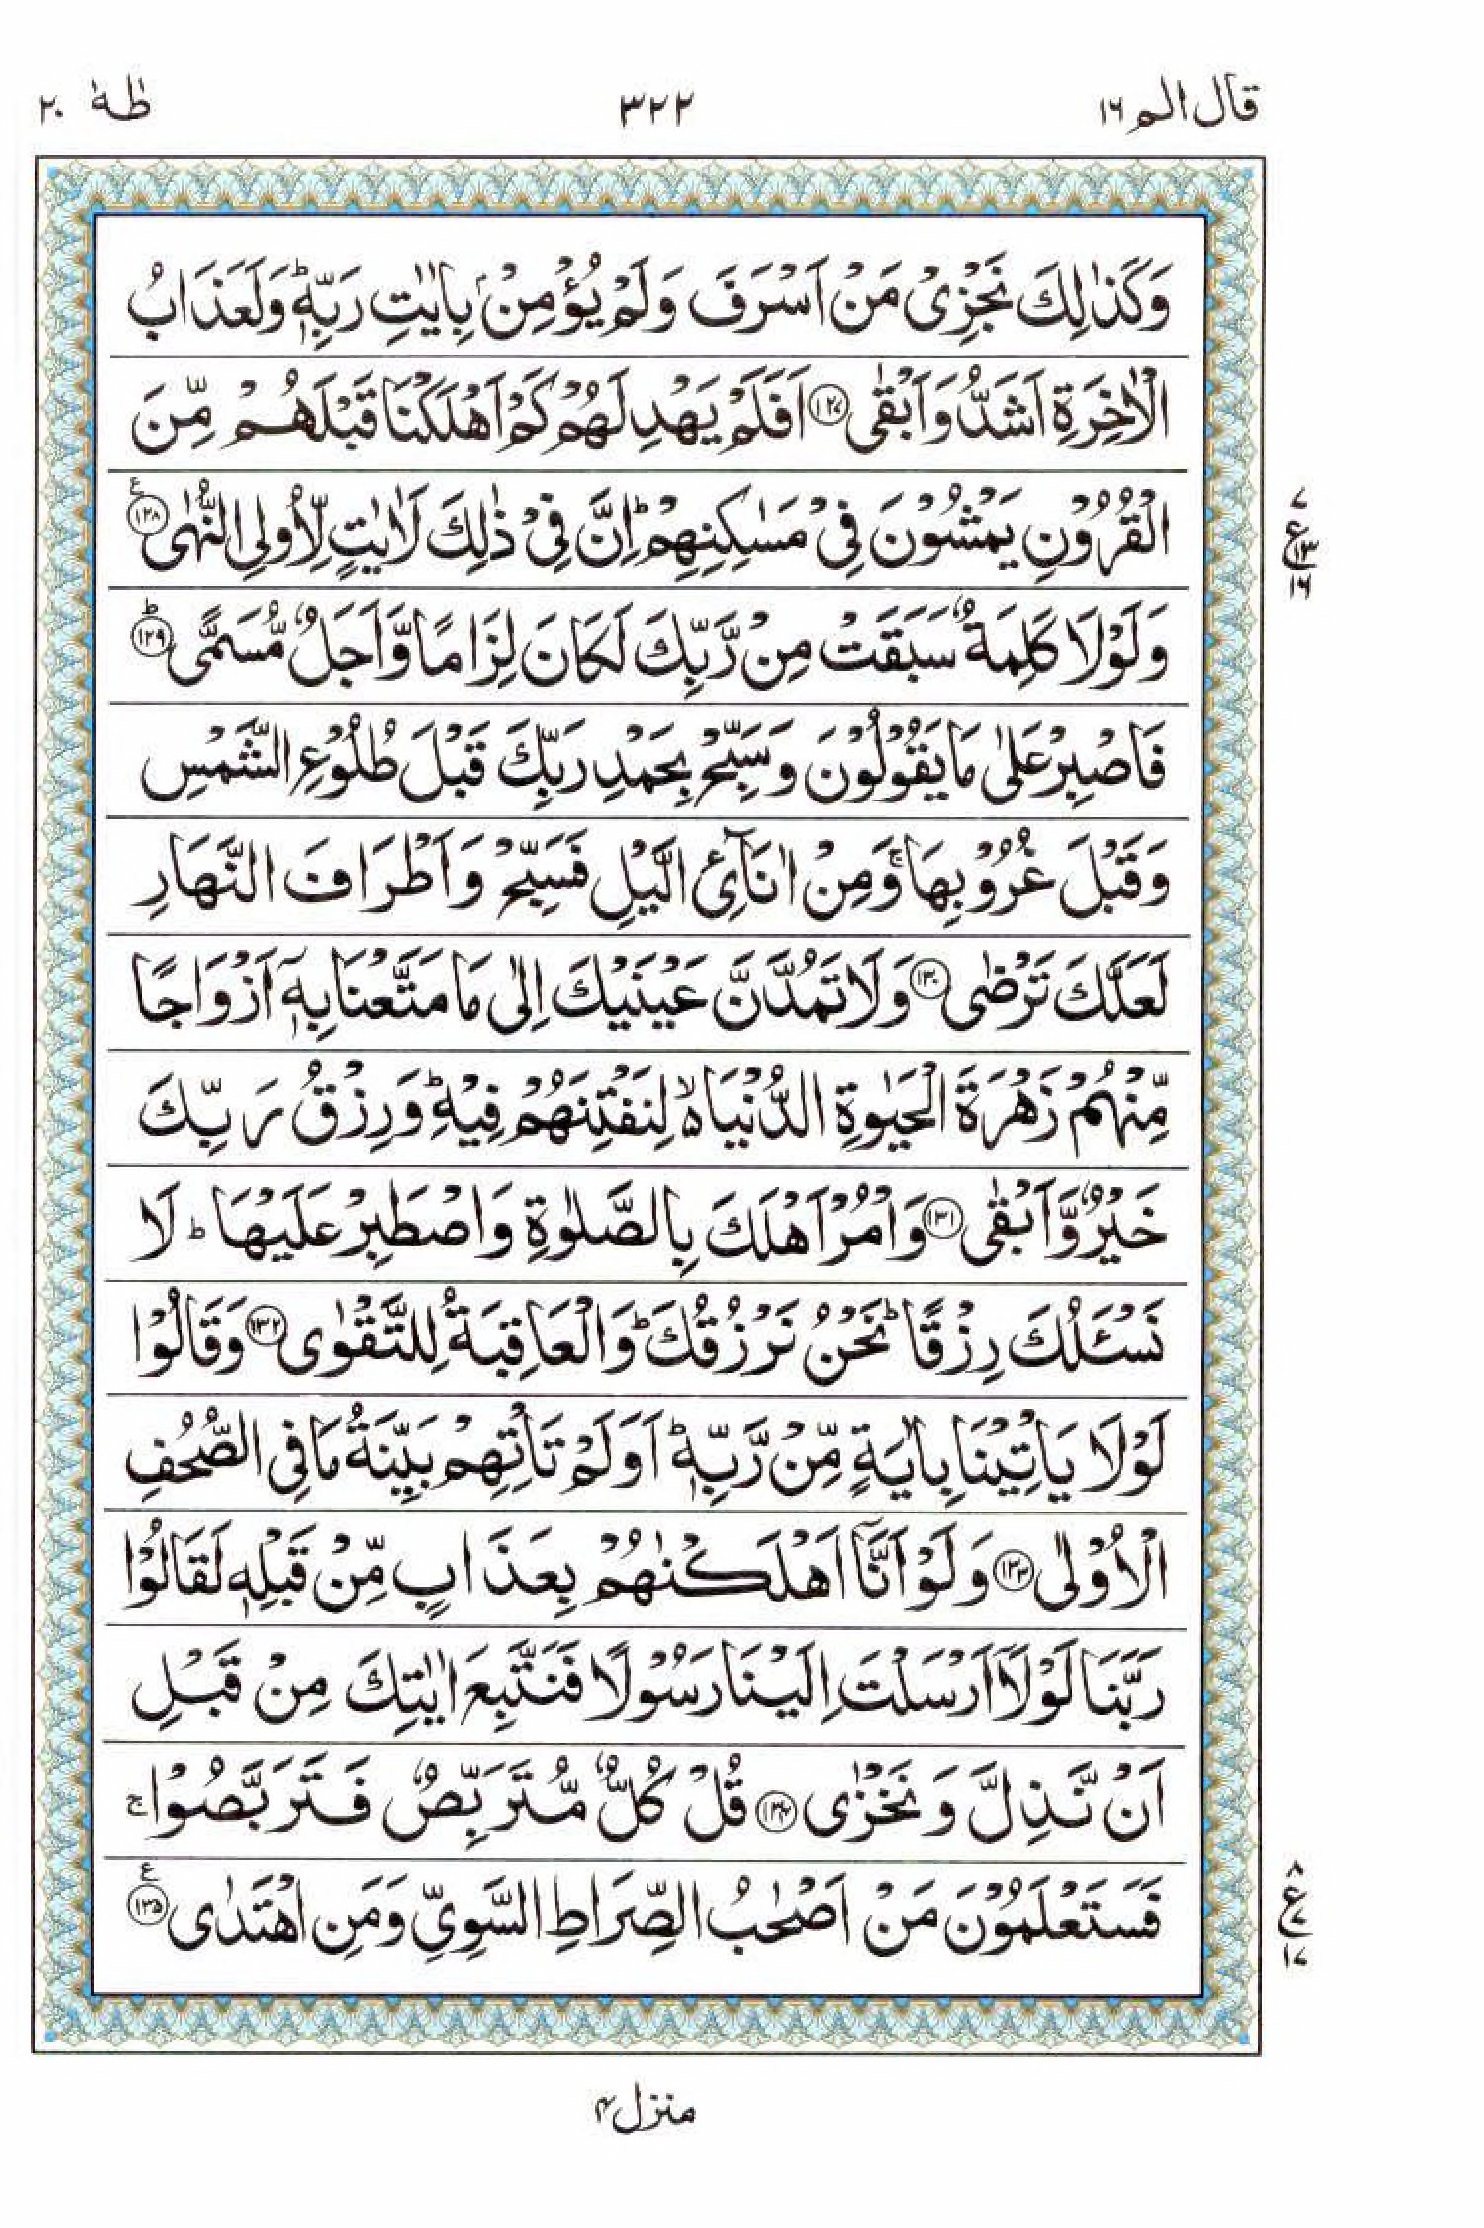 قال الم ١٦ ٣٢٢ طٰهٰ ٢٠
وَكَذٰلِكَ نَجْزِیْ مَنْ اَسْرَفَ وَلَمْ یُؤْمِنْۢ بِاٰیٰتِ رَبِّهٖؕ وَلَعَذَابُ
الْاٰخِرَةِ اَشَدُّ وَاَبْقٰی ﴿١٢٧﴾ اَفَلَمْ یَهْدِ لَهُمْ كَمْ اَهْلَكْنَا قَبْلَهُمْ مِّنَ
الْقُرُوْنِ یَمْشُوْنَ فِیْ مَسٰكِنِهِمْؕ اِنَّ فِیْ ذٰلِكَ لَاٰیٰتٍ لِّاُولِی النُّهٰی ﴿١٢٨﴾ ع
٧ ع ١٣ ١٦
وَلَوْلَا كَلِمَةٌ سَبَقَتْ مِنْ رَّبِّكَ لَكَانَ لِزَامًا وَّاَجَلٌ مُّسَمًّی ﴿١٢٩﴾ؕ
فَاصْبِرْ عَلٰی مَا یَقُوْلُوْنَ وَسَبِّحْ بِحَمْدِ رَبِّكَ قَبْلَ طُلُوْعِ الشَّمْسِ
وَقَبْلَ غُرُوْبِهَاۚ وَمِنْ اٰنَآئِ الَّیْلِ فَسَبِّحْ وَاَطْرَافَ النَّهَارِ
لَعَلَّكَ تَرْضٰی ﴿١٣٠﴾ وَلَا تَمُدَّنَّ عَیْنَیْكَ اِلٰی مَا مَتَّعْنَا بِهٖۤ اَزْوَاجًا
مِّنْهُمْ زَهْرَةَ الْحَیٰوةِ الدُّنْیَا۬ۙ لِنَفْتِنَهُمْ فِیْهِؕ وَرِزْقُ رَبِّكَ
خَیْرٌ وَّاَبْقٰی ﴿١٣١﴾ وَاْمُرْ اَهْلَكَ بِالصَّلٰوةِ وَاصْطَبِرْ عَلَیْهَاؕ لَا
نَسْـَٔلُكَ رِزْقًاؕ نَحْنُ نَرْزُقُكَؕ وَالْعَاقِبَةُ لِلتَّقْوٰی ﴿١٣٢﴾ وَقَالُوْا
لَوْلَا یَاْتِیْنَا بِاٰیَةٍ مِّنْ رَّبِّهٖؕ اَوَلَمْ تَاْتِهِمْ بَیِّنَةُ مَا فِی الصُّحُفِ
الْاُوْلٰی ﴿١٣٣﴾ وَلَوْ اَنَّاۤ اَهْلَكْنٰهُمْ بِعَذَابٍ مِّنْ قَبْلِهٖ لَقَالُوْا
رَبَّنَا لَوْلَاۤ اَرْسَلْتَ اِلَیْنَا رَسُوْلًا فَنَتَّبِعَ اٰیٰتِكَ مِنْ قَبْلِ
اَنْ نَّذِلَّ وَنَخْزٰی ﴿١٣٤﴾ قُلْ كُلٌّ مُّتَرَبِّصٌ فَتَرَبَّصُوْاۚ
فَسَتَعْلَمُوْنَ مَنْ اَصْحٰبُ الصِّرَاطِ السَّوِیِّ وَمَنِ اهْتَدٰی ﴿١٣٥﴾ ع
٨ ع ٧ ١٧
منزل ٤